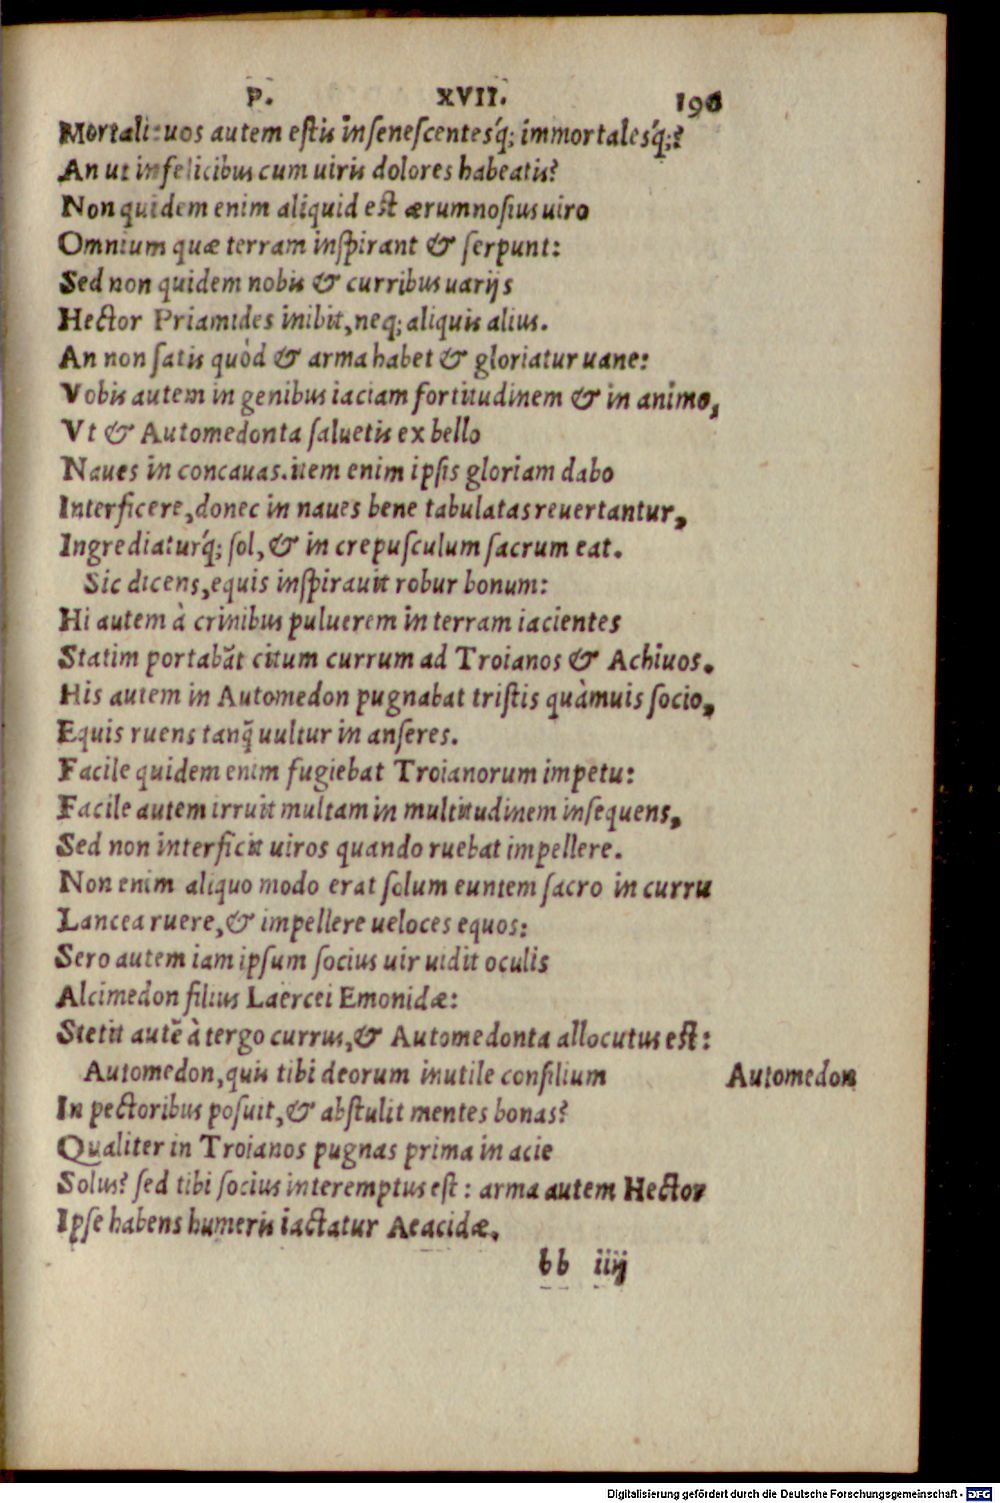 P. XVII. 196
Mortali: uos autem estis insenescentesq́; immortalesq́;?
An ut infelicibus cum uiris dolores habeatis?
Non quidem enim aliquid est ærumnosius uiro
Omnium quæ terram inspirant & serpunt:
Sed non quidem nobis & curribus uarijs
Hector Priamides inibit, neq; aliquis alius.
An non satis quòd & arma habet & gloriatur uane:
Vobis autem in genibus iaciam fortitudinem & in animo,
Vt & Automedonta saluetis ex bello
Naues in concauas. item enim ipsis gloriam dabo
Interficere, donec in naues bene tabulatas reuertantur,
Ingrediaturq́; sol, & in crepusculum sacrum eat.
Sic dicens, equis inspirauit robur bonum:
Hi autem à crinibus puluerem in terram iacientes
Statim portabāt citum currum ad Troianos & Achiuos.
His autem in Automedon pugnabat tristis quàmuis socio,
Equis ruens tanq̃ uultur in anseres.
Facile quidem enim fugiebat Troianorum impetu:
Facile autem irruit multam in multitudinem insequens,
Sed non interficit uiros quando ruebat impellere.
Non enim aliquo modo erat solum euntem sacro in curru
Lancea ruere, & impellere ueloces equos:
Sero autem iam ipsum socius uir uidit oculis
Alcimedon filius Laercei Emonidæ:
Stetit autē à tergo currus, & Automedonta allocutus est:
Automedon, quis tibi deorum inutile consilium
Automedon
In pectoribus posuit, & abstulit mentes bonas?
Qualiter in Troianos pugnas prima in acie
Solus? sed tibi socius interemptus est: arma autem Hector
Ipse habens humeris iactatur Aeacidæ.
bb iiij
Digitalisierung gefördert durch die Deutsche Forschungsgemeinschaft - DFG